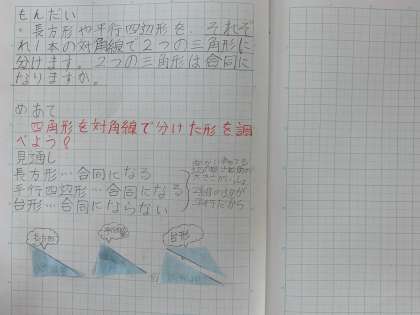 もんだい
・長方形や平行四辺形を、それぞ
れ1本の対角線で2つの三角形に
分けます。2つの三角形は合同に
なりますか。
めあて
四角形を対角線で分けた形を調
べよう?
見通し
長方形…合同になる
平行四辺形…合同になる
台形…合同にならない
平行だから
長方形
台形